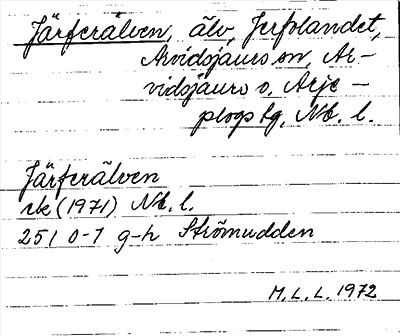 Järferälven, älv, Jerfolandet,
Arvidsjaurs sn, Ar-
vidsjaurs o. Arje-
plogs tg, Nb. l.
Järferälven
rk (1971) Nb. l.
25 I 0-1 g-h Strömudden
M. L. L. 1972